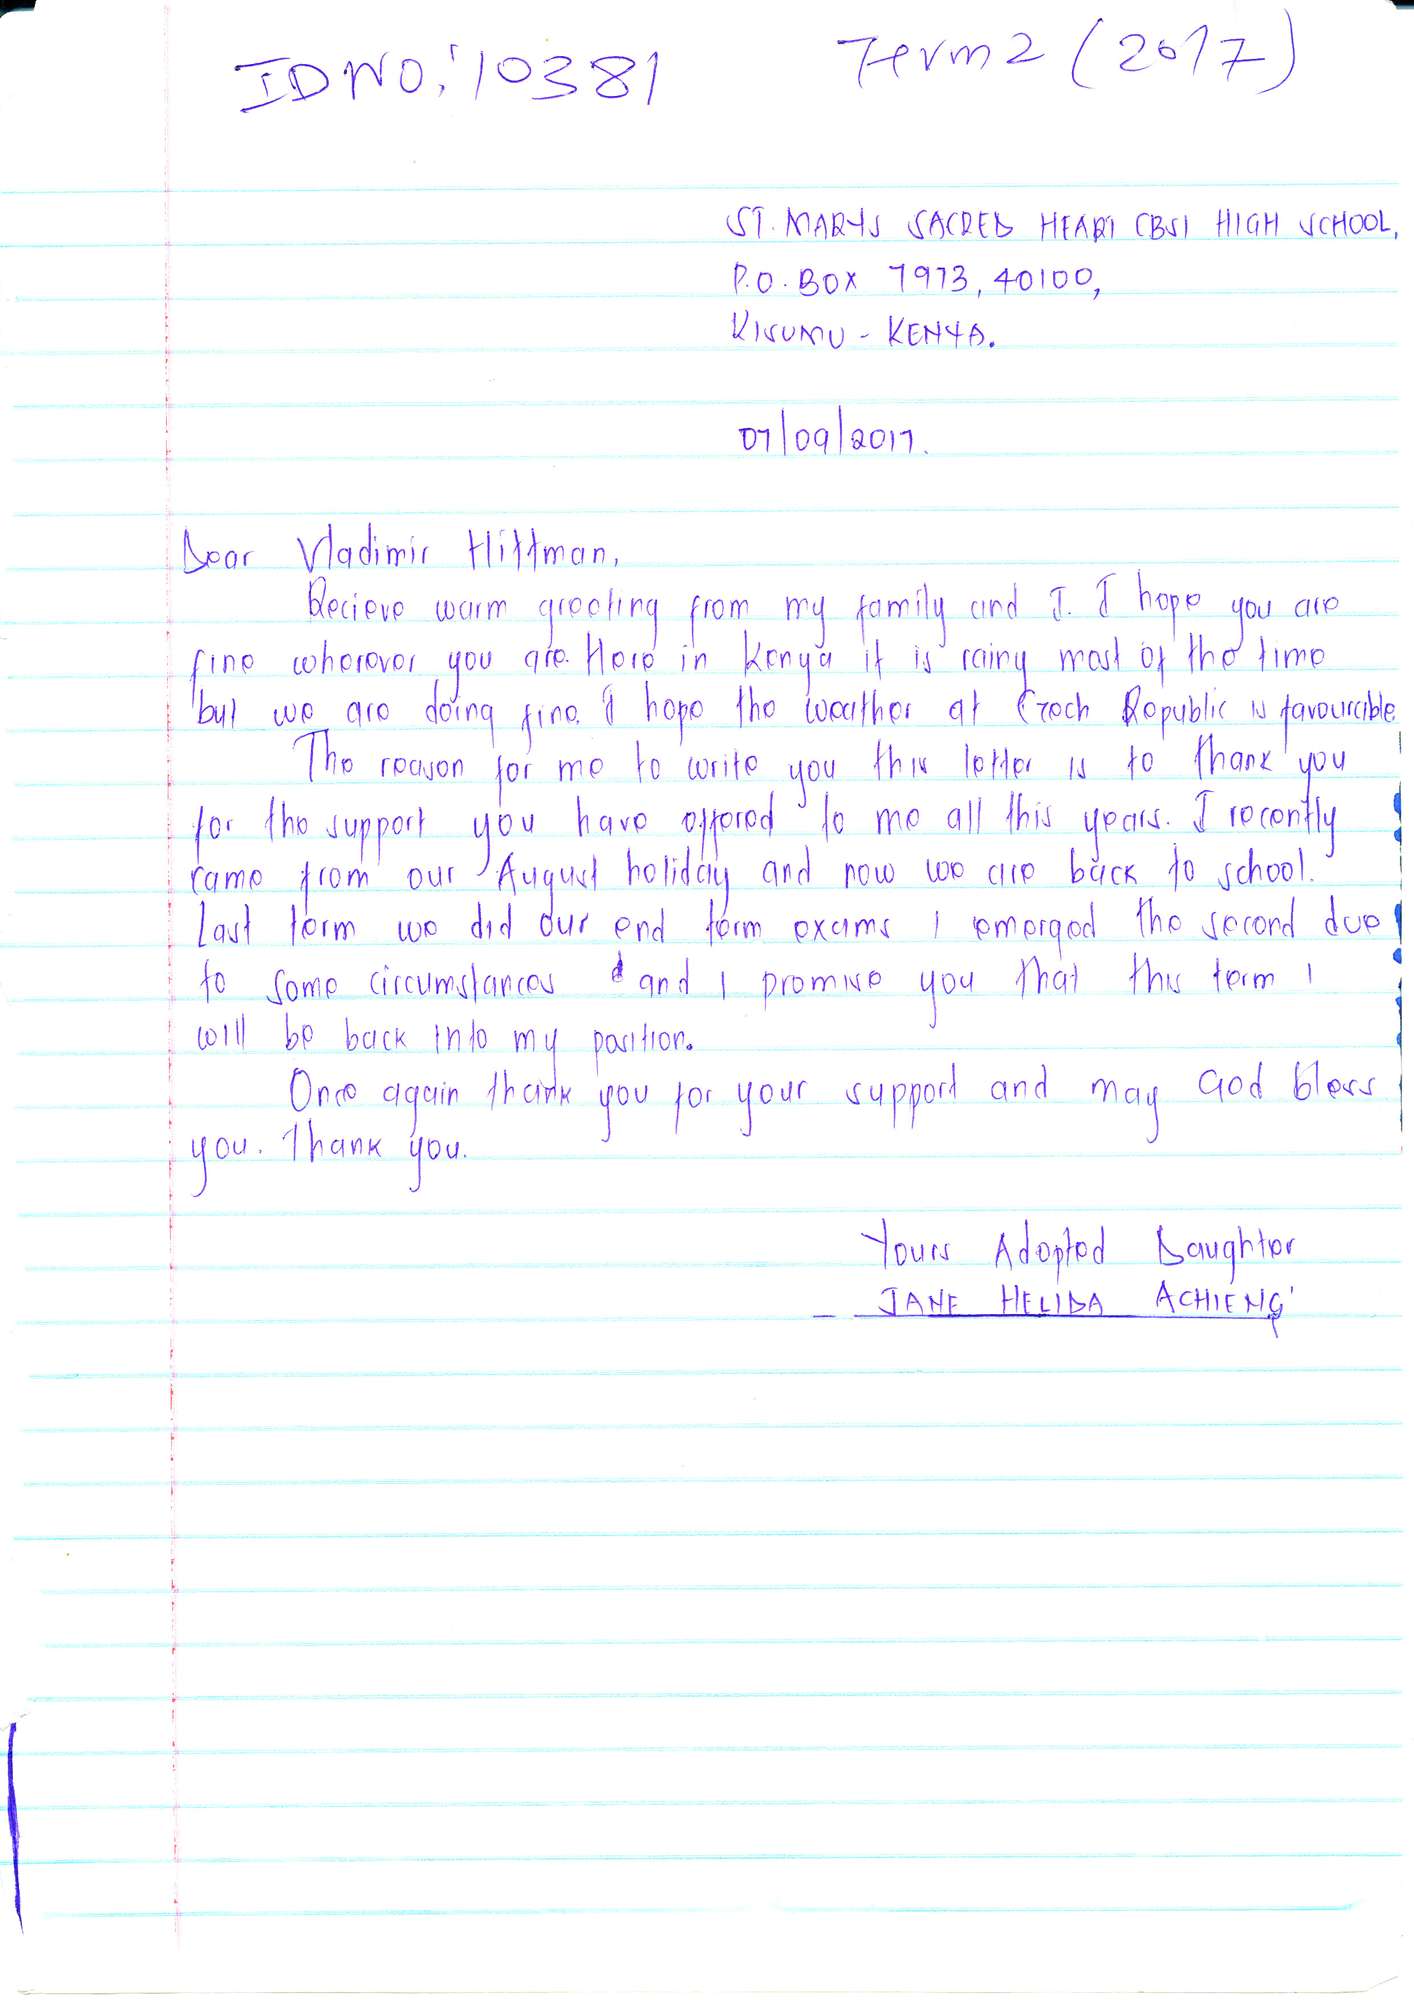 ID NO: 10381
Term 2 (2017)
ST. MARYS SACRED HEART CBSI HIGH SCHOOL,
P.O. BOX 7973, 40100,
KISUMU - KENYA.
07/09/2017.
Dear Vladimir Hittman,
Recieve warm greeting from my family and I. I hope you are
fine wherever you are. Here in Kenya it is rainy most of the time
but we are doing fine. I hope the weather at Czech Republic is favourable.
The reason for me to write you this letter is to thank you
for the support you have offered to me all this years. I recently
came from our August holiday and now we are back to school.
Last term we did our end term exams I emerged the second due
to some circumstances and I promise you that this term I
will be back into my position.
Once again thank you for your support and may God bless
you. Thank you.
Yours Adopted Daughter
JANE HELIDA ACHIENG'